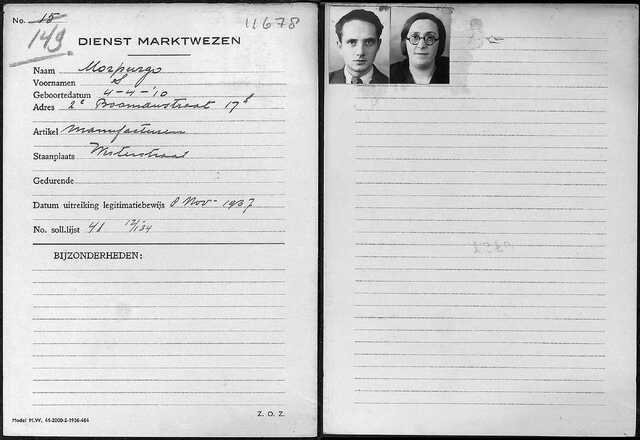 No. 15
149
11678
DIENST MARKTWEZEN
Naam Morpurgo
Voornamen
Geboortedatum 4-4-'10
Adres 2e Boomanstraat 17
Artikel Manufacturen
Staanplaats
Gedurende
Datum uitreiking legitimatiebewijs 8 Nov - 1937
No. soll.lijst 41 12/1 '34
BIJZONDERHEDEN:
Z. O. Z.
Model M.W. 44-2000-2-1936-464